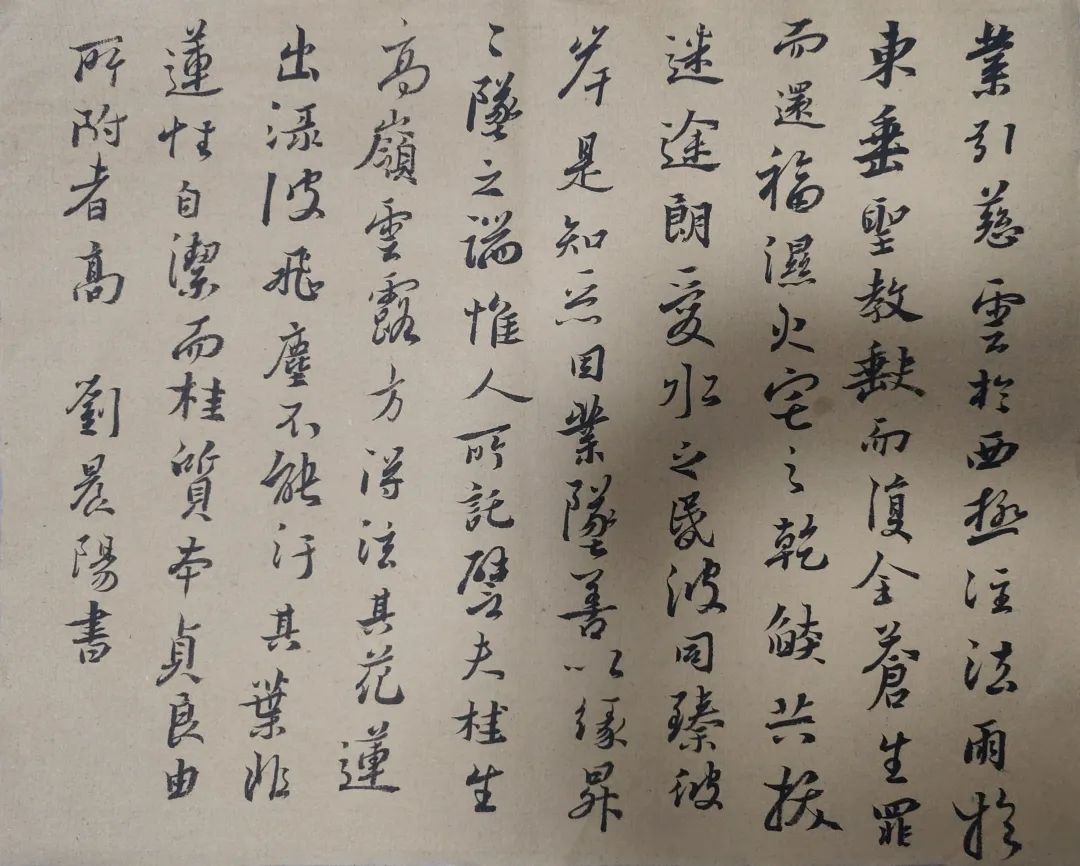 業引慈雲於西極注法雨於
東垂聖教缺而復全蒼生罪
而還福濕火宅之乾燄共拔
迷途朗愛水之昏波同臻彼
岸是知惡因業墜善以緣昇
〻墜之端惟人所託譬夫桂生
高嶺雲露方得泫其花蓮
出淥波飛塵不能汙其葉非
蓮性自潔而桂質本貞良由
所附者高 劉晨陽書